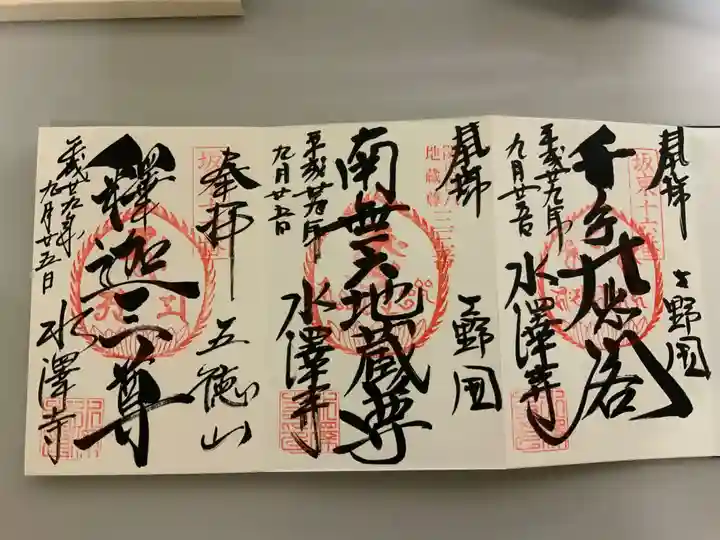 奉拝
坂東十六番
上野国
千手大悲閣
平成廿九年
九月廿五日
水澤寺
奉拝
地蔵尊
上野国
南無六地蔵尊
平成廿九年
九月廿五日
水澤寺
奉拝
五徳山
釋迦三尊
平成廿九年
九月廿五日
水澤寺